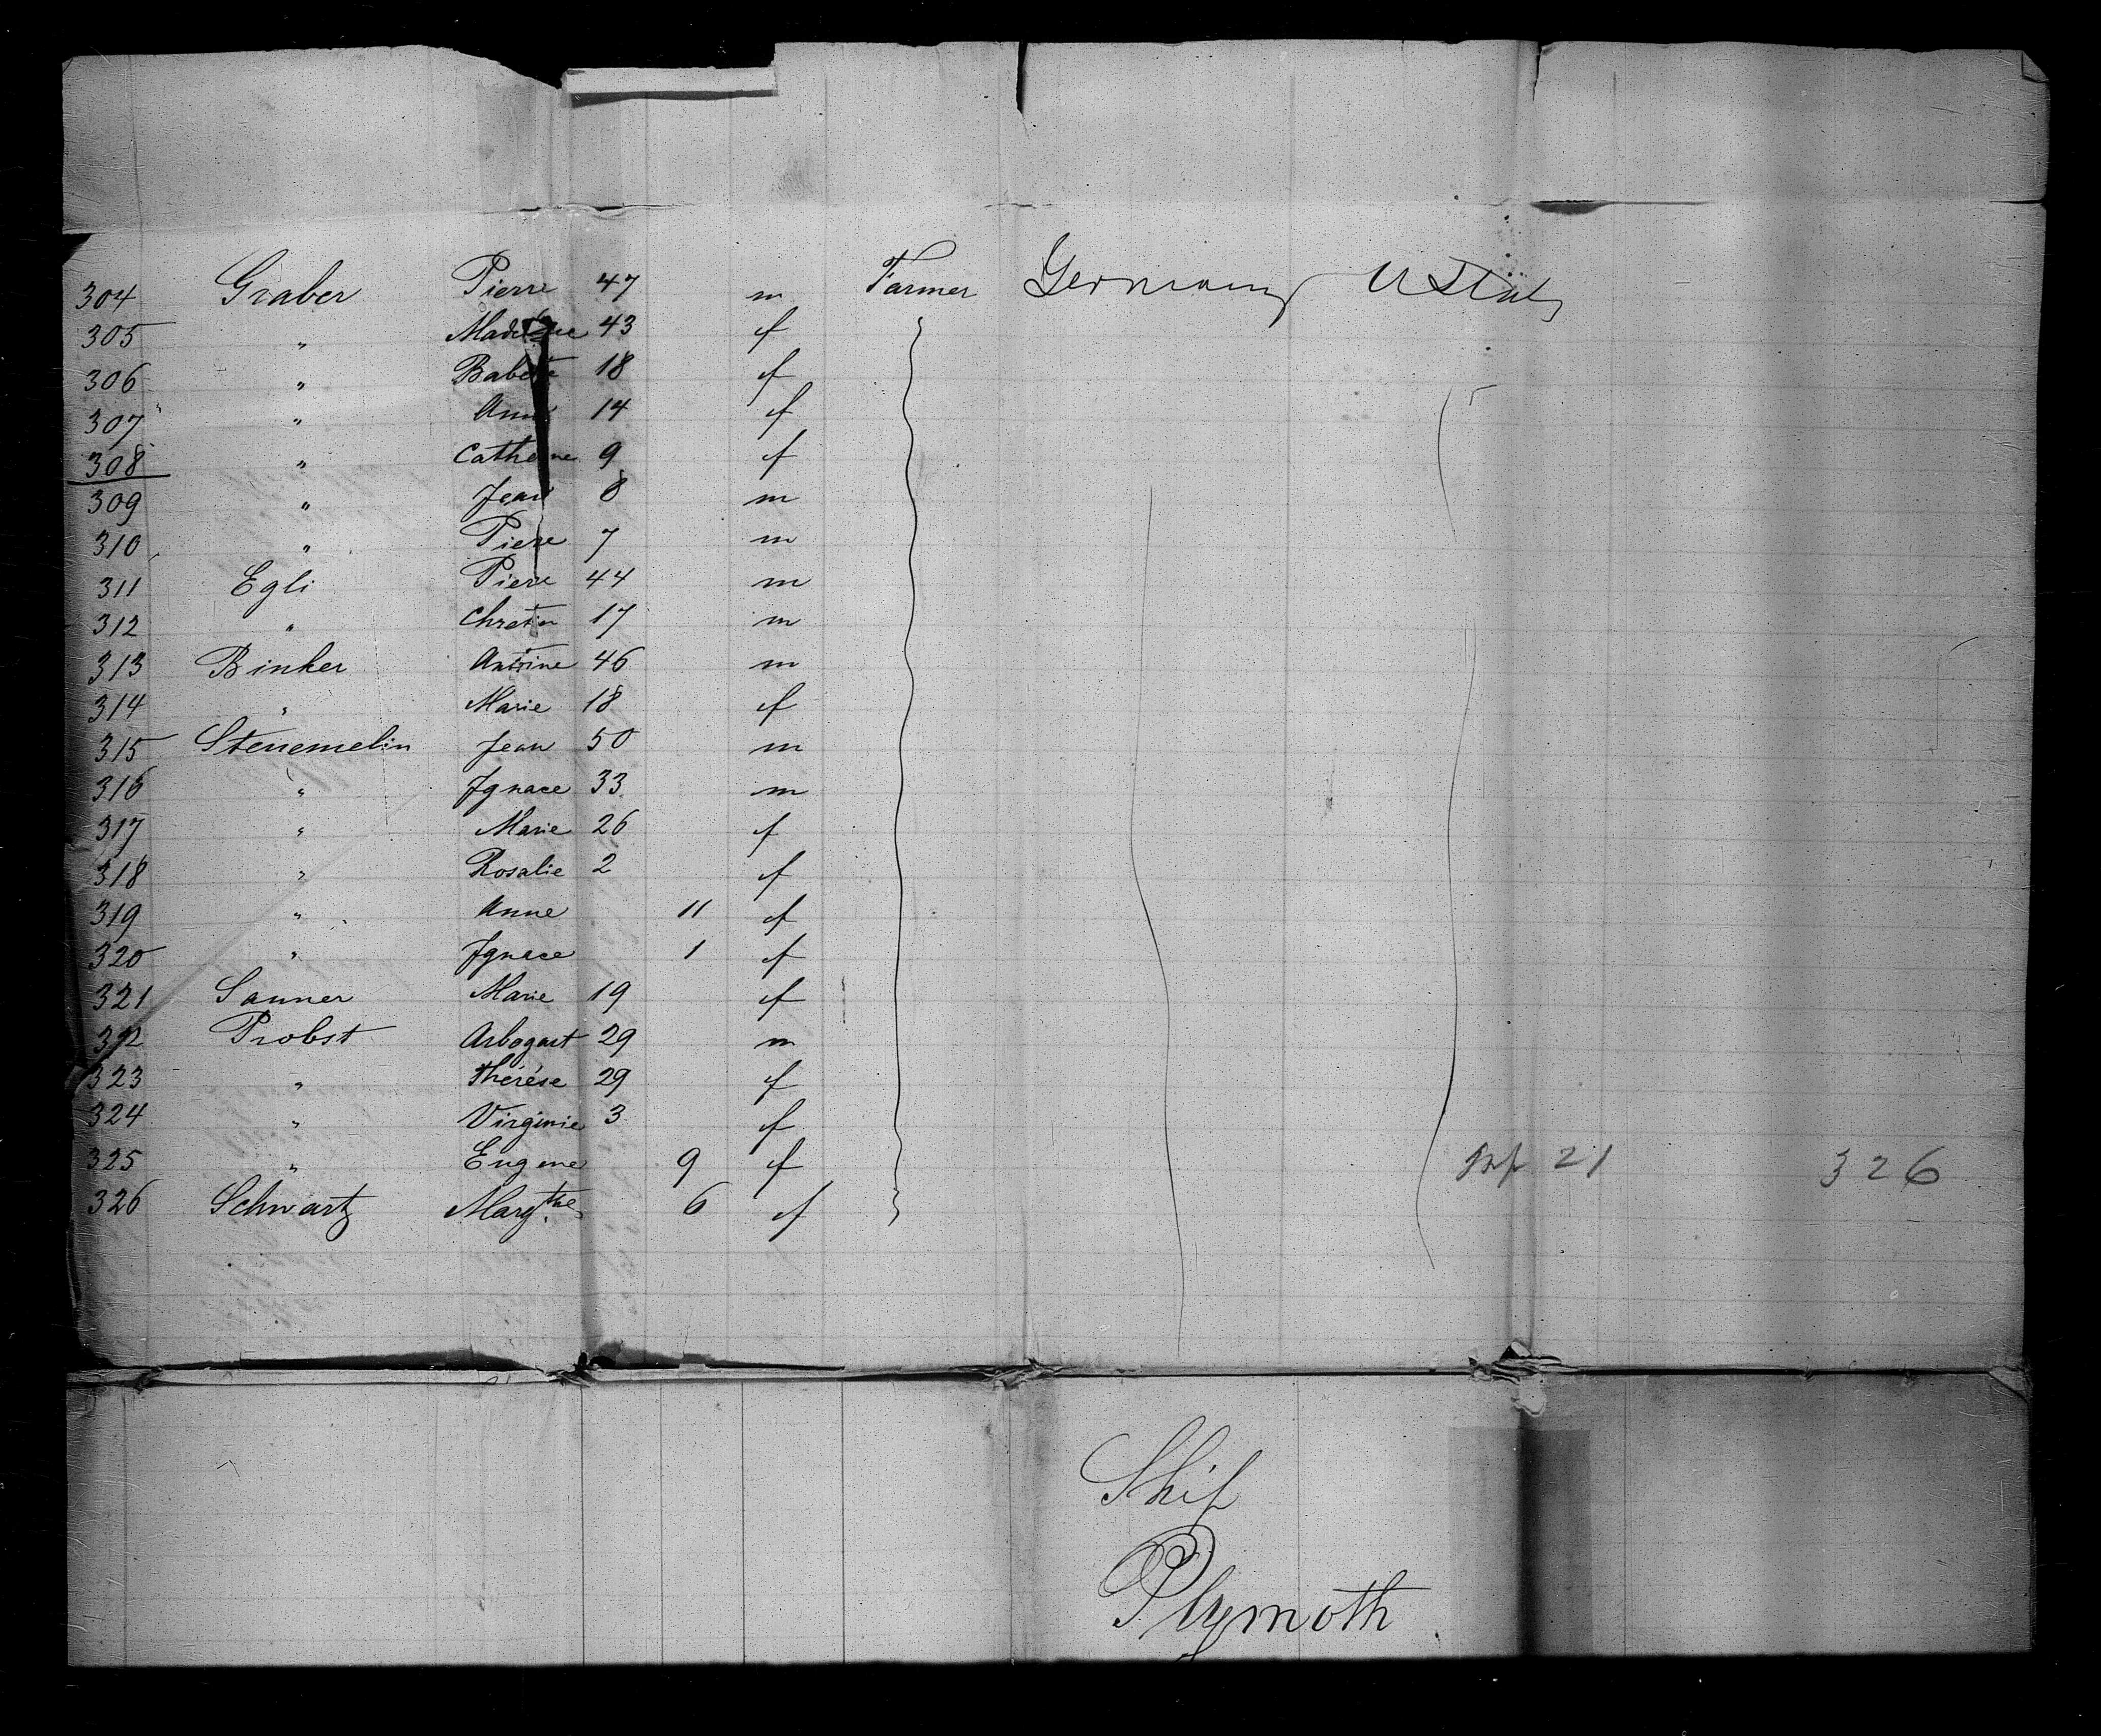 304 Graber Pierre 47 m Farmer Germany U States
305 " Madeleine 43 f
306 " Babette 18 f
307 " Anne 14 f
308 " Catherine 9 f
309 " Jean 8 m
310 " Piere 7 m
311 Egli Piere 44 m
312 " Chretn 17 m
313 Binker Antoine 46 m
314 " Marie 18 f
315 Stenemelin Jean 50 m
316 " Ignace 33 m
317 " Marie 26 f
318 " Rosalie 2 f
319 " Anne 11 f
320 " Ignace 1 f
321 Sanner Marie 19 f
322 Probst Arbogast 29 m
323 " Thérése 29 f
324 " Virginie 3 f
325 " Eugene 9 f 21 326
326 Schwartz Margthe 6 f
Ship
Plymoth